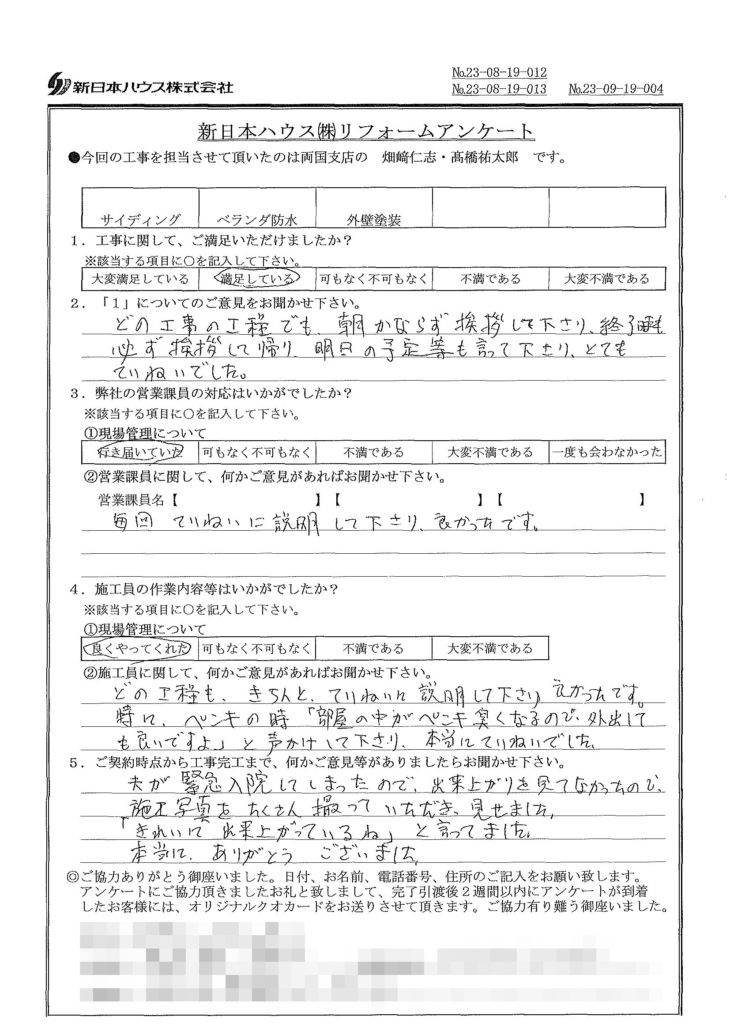 新日本ハウス株式会社
№23-08-19-012
№23-08-19-013 №23-09-19-004
新日本ハウス㈱リフォームアンケート
●今回の工事を担当させて頂いたのは両国支店の 畑﨑仁志・髙橋祐太郎 です。
サイディング ベランダ防水 外壁塗装
1．工事に関して、ご満足いただけましたか？
※該当する項目に○を記入して下さい。
大変満足している 満足している 可もなく不可もなく 不満である 大変不満である
2．「1」についてのご意見をお聞かせ下さい。
どの工事の工程でも、朝かならず挨拶して下さり、終了時も
必ず挨拶して帰り、明日の予定等も言って下さり、とても
ていねいでした。
3．弊社の営業課員の対応はいかがでしたか？
※該当する項目に○を記入して下さい。
①現場管理について
行き届いていた 可もなく不可もなく 不満である 大変不満である 一度も会わなかった
②営業課員に関して、何かご意見があればお聞かせ下さい。
営業課員名【 】【 】【 】
毎回 ていねいに説明して下さり、良かったです。
4．施工員の作業内容等はいかがでしたか？
※該当する項目に○を記入して下さい。
①現場管理について
良くやってくれた 可もなく不可もなく 不満である 大変不満である
②施工員に関して、何かご意見があればお聞かせ下さい。
どの工程も、きちんと、ていねいに説明して下さり良かったです。
特に、ペンキの時「部屋の中がペンキ臭くなるので、外出して
も良いですよ」と声かけして下さり、本当にていねいでした。
5．ご契約時点から工事完工まで、何かご意見等がありましたらお聞かせ下さい。
夫が緊急入院してしまったので、出来上がりを見てなかったので、
施工写真をたくさん撮っていただき、見せました。
「きれいに出来上がっているね」と言ってました。
本当に、ありがとうございました。
◎ご協力ありがとう御座いました。日付、お名前、電話番号、住所のご記入をお願い致します。
アンケートにご協力頂きましたお礼と致しまして、完了引渡後2週間以内にアンケートが到着
したお客様には、オリジナルクオカードをお送りさせて頂きます。ご協力有り難う御座いました。